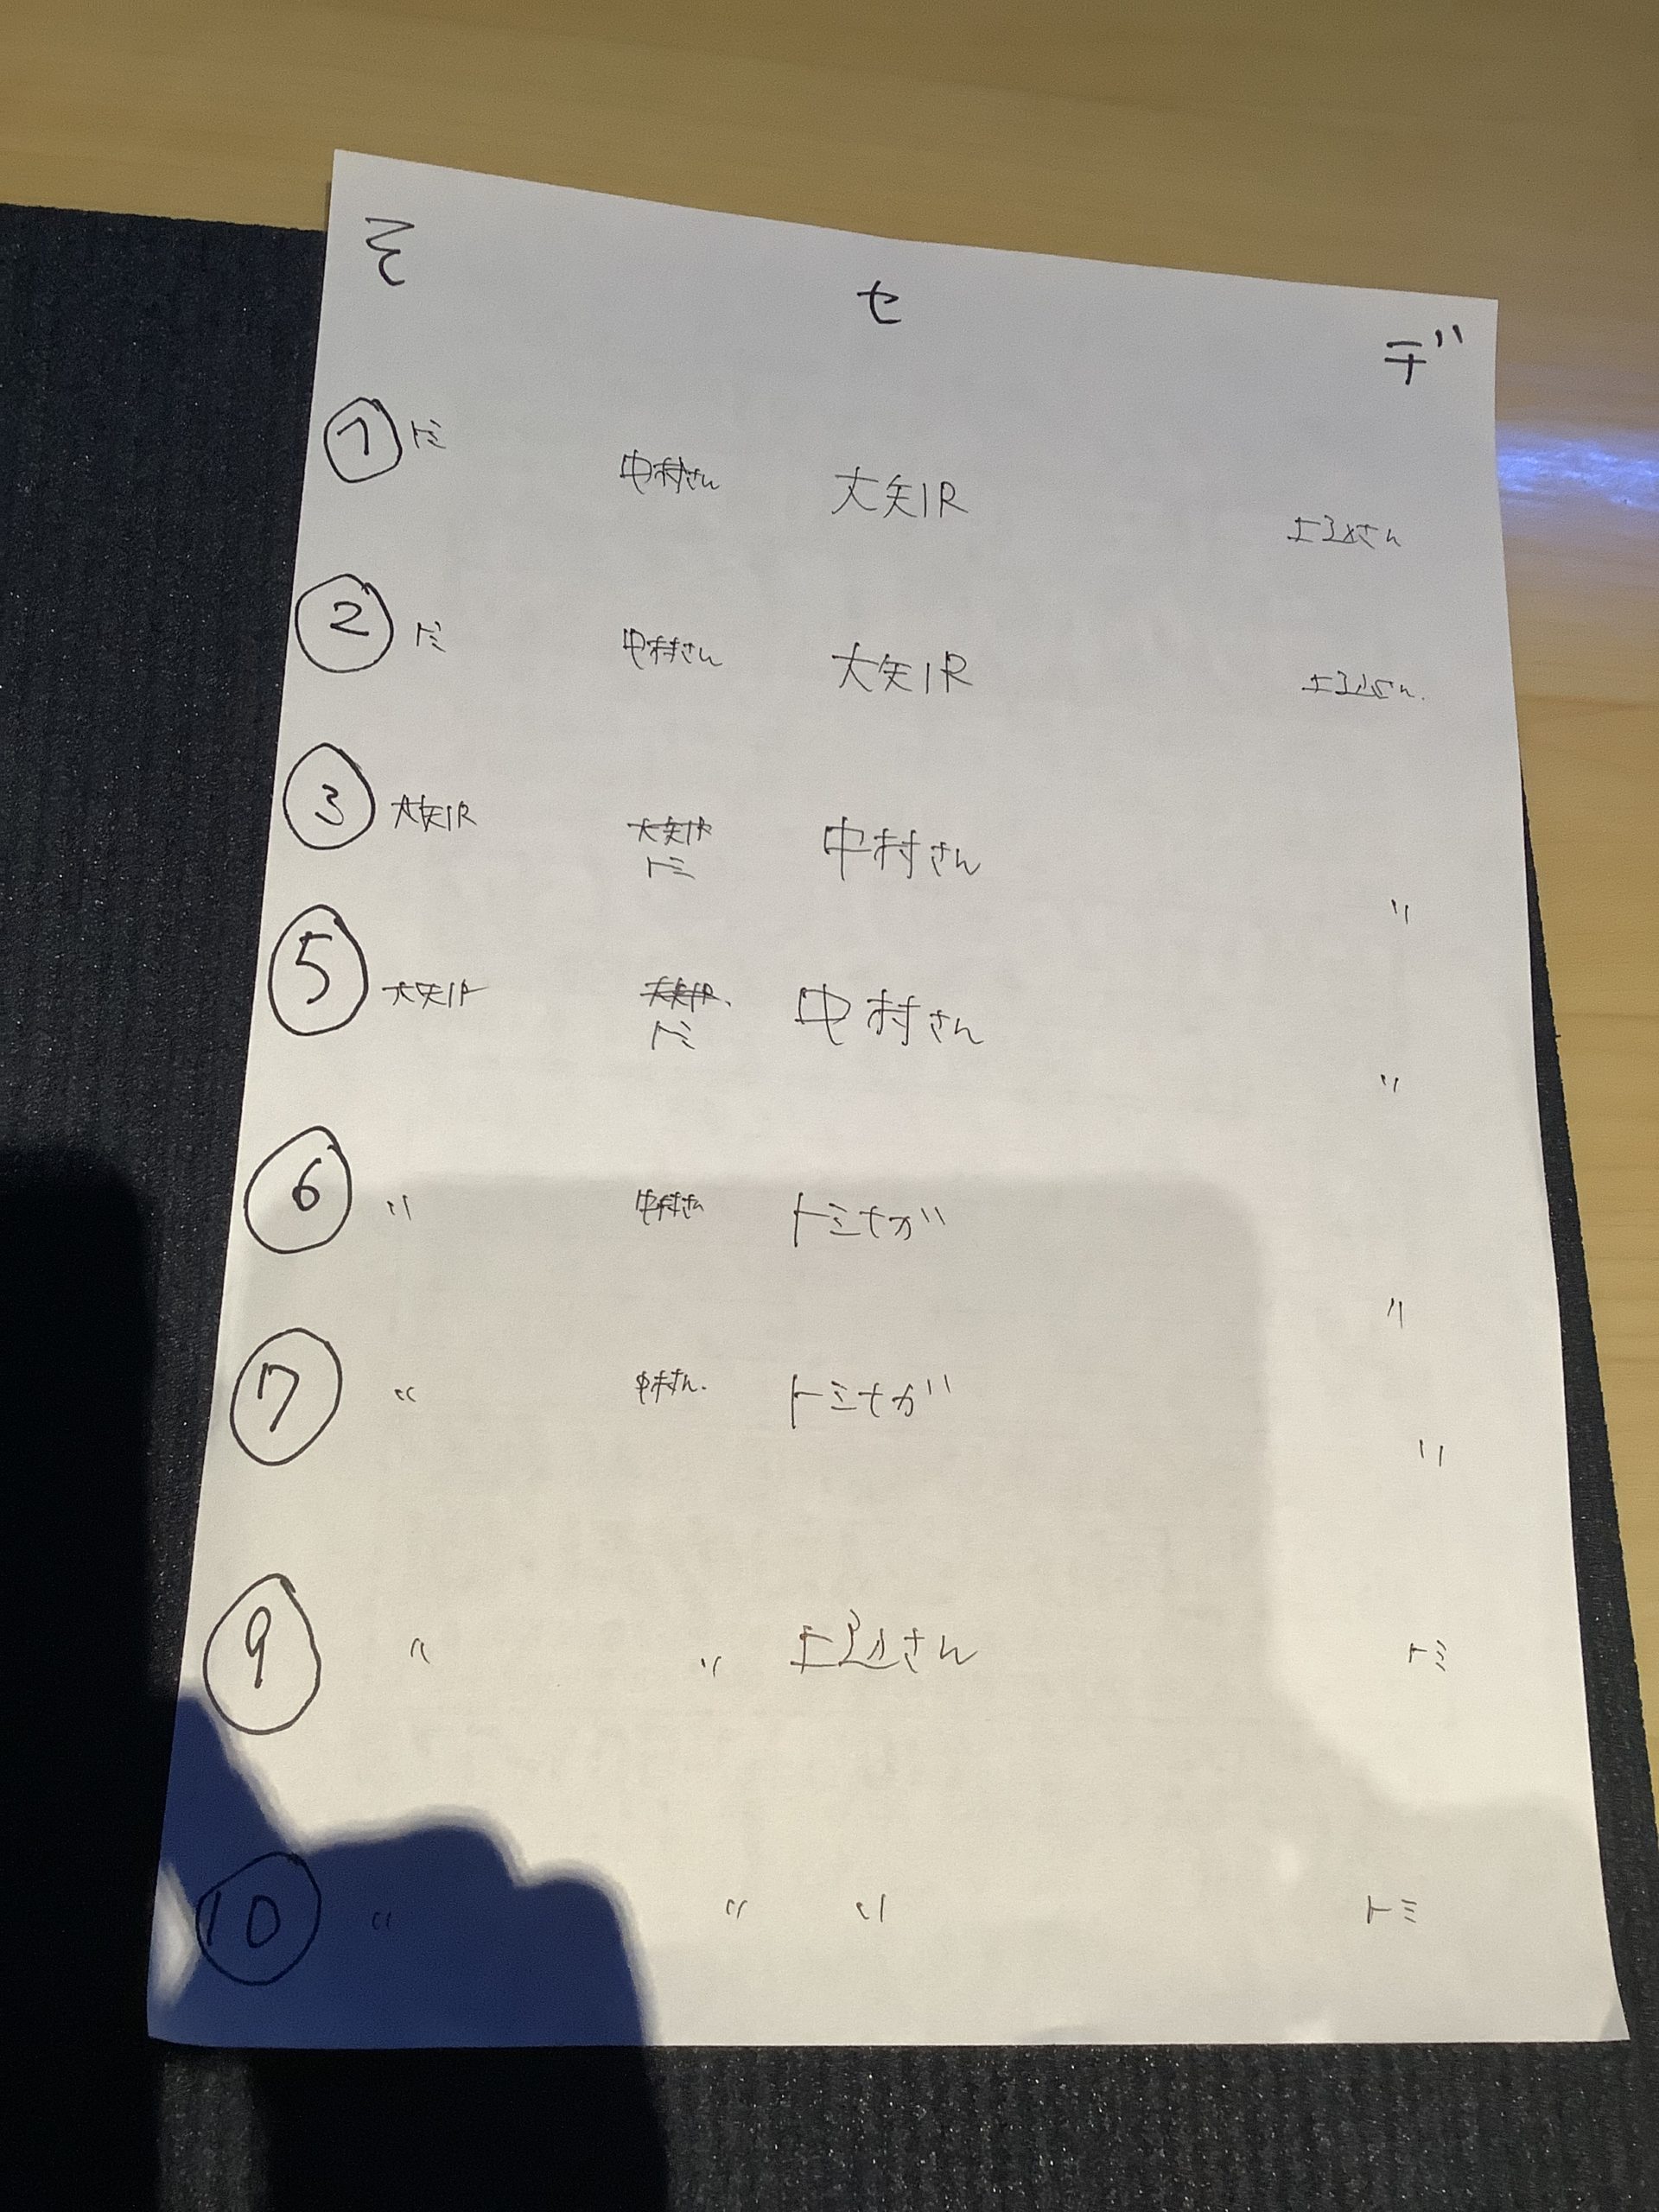 そ セ デ
① トミ 中村さん 大矢IR 土辺さん
② トミ 中村さん 大矢IR 土辺さん
③ 大矢IR 大矢IR 中村さん 〃
トミ
⑤ 大矢IR 大矢IR 中村さん 〃
トミ
⑥ 〃 中村さん トミナガ 〃
⑦ 〃 中村さん トミナガ 〃
⑨ 〃 〃 土辺さん トミ
⑩ 〃 〃 〃 トミ